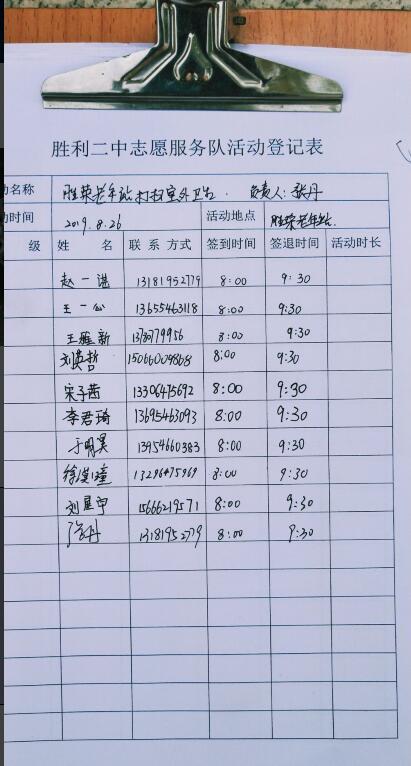 胜利二中志愿服务队活动登记表
动名称 胜荣老年站打扫室外卫生. 负责人:张丹
动时间 2019.8.26 活动地点 胜荣老年站.
级 姓 名 联系方式 签到时间 签退时间 活动时长
赵一 13181952779 8:00 9:30
王一 13655463118 8:00 9:30
王雅新 8:00 9:30
刘英哲 15066009868 8:00 9:30
宋子茜 13306475692 8:00 9:30
李君琦 13695463093 8:00 9:30
于明昊 13954660383 8:00 9:30
徐 8:00 9:30
刘星宇 15666219571 8:00 9:30
张丹 13181952779 8:00 9:30